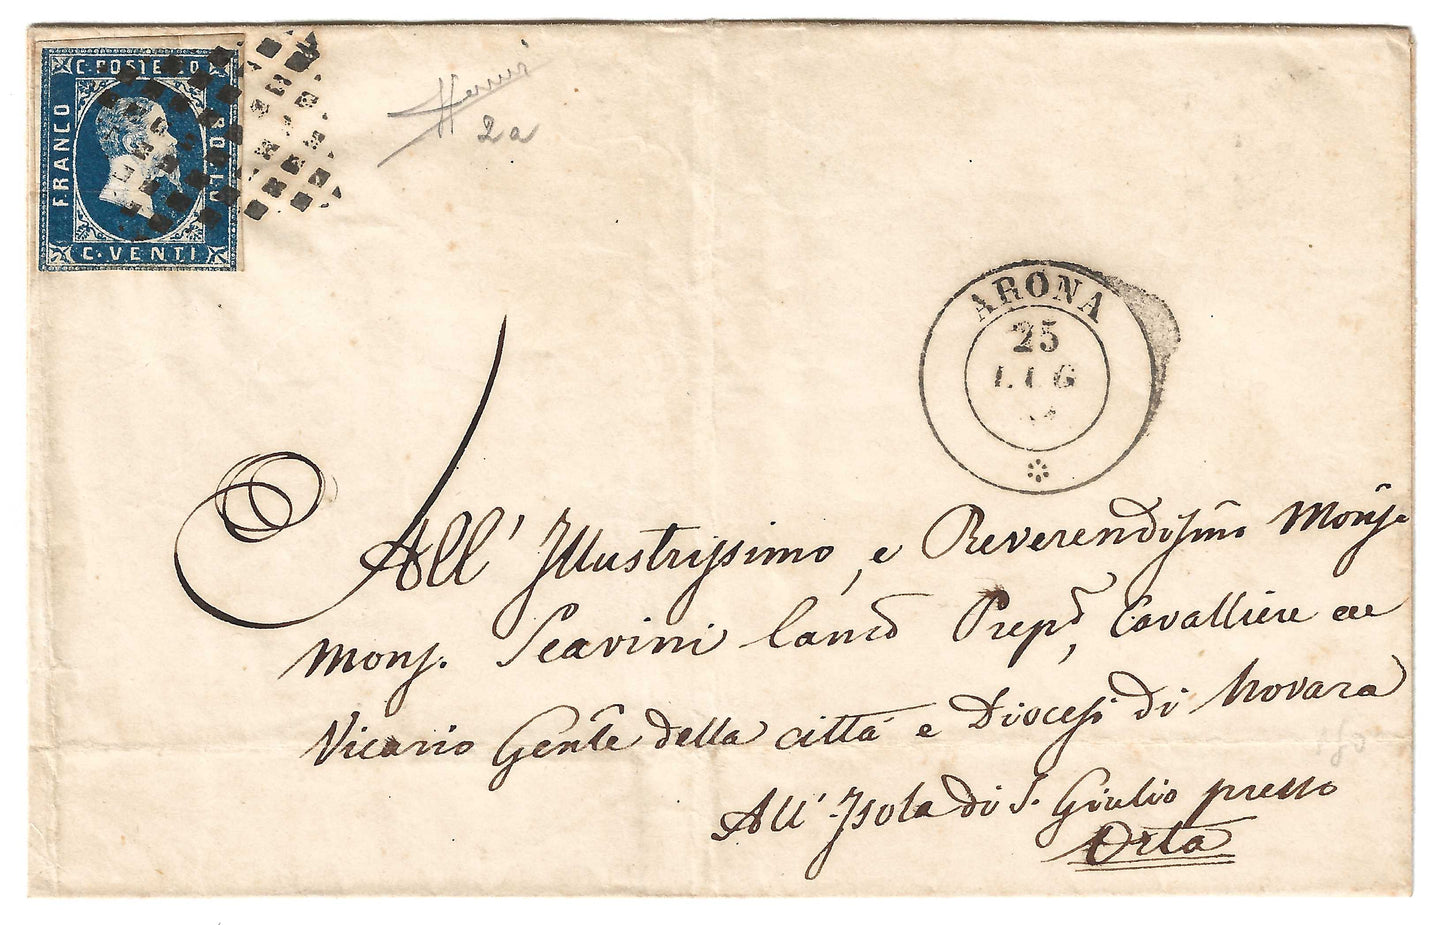 C. POSTE
FRANCO
BOLLO
C. VENTI
2a
ARONA
25
LUG
All' Illustrissimo, e Reverendisimo Monsr
Mons. Scavini Canco Prepo, Cavalliere
Vicario Genle della città e Diocesi di Novara
All' Isola di S. Giulio presso
Orta